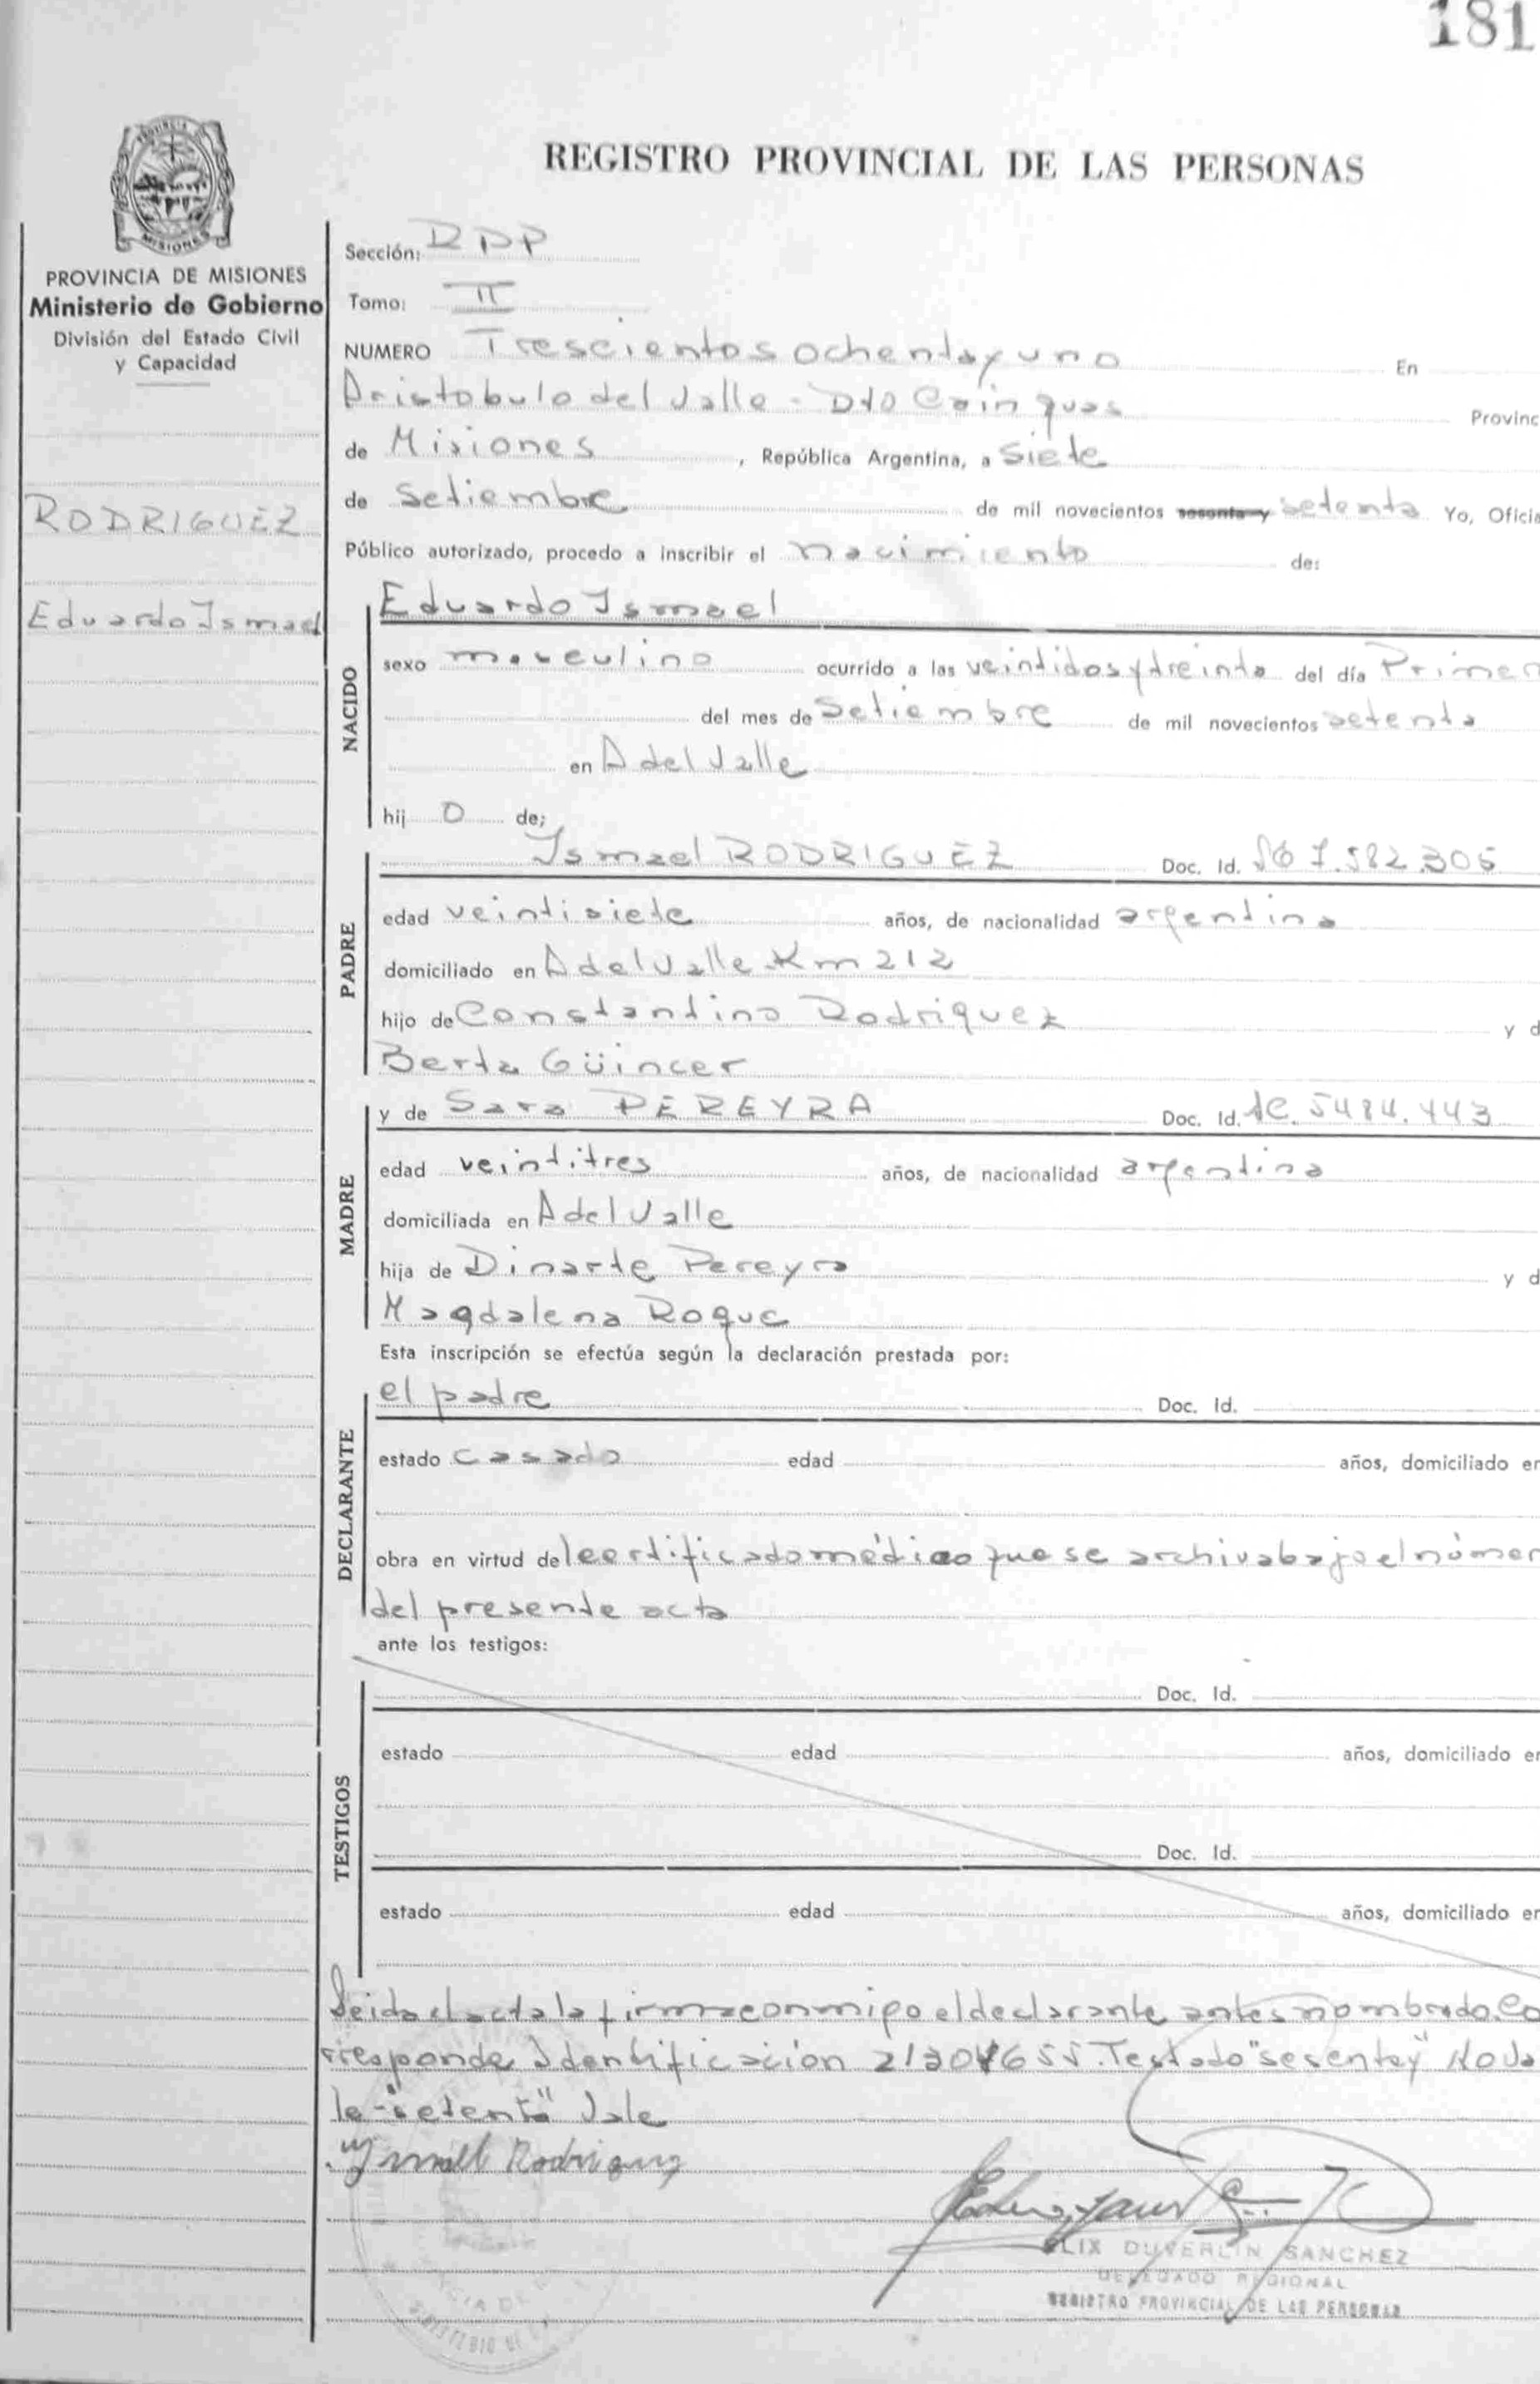 181
REGISTRO PROVINCIAL DE LAS PERSONAS
PROVINCIA DE MISIONES
Ministerio de Gobierno
División del Estado Civil
y Capacidad
RODRIGUEZ
Eduardo Ismael
Sección: RDP
Tomo: II
NUMERO Trescientos ochenta y uno En
Aristobulo del Valle - Dto Cainguas Provinc
de Misiones, República Argentina, a Siete
de Setiembre de mil novecientos sesenta y setenta Yo, Oficia
Público autorizado, procedo a inscribir el nacimiento de:
NACIDO
Eduardo Ismael
sexo masculino ocurrido a las veintidos y treinta del día Primer
del mes de Setiembre de mil novecientos setenta
en A del Valle
hij o de;
PADRE
Ismael RODRIGUEZ Doc. Id. 7.582.305
edad veintisiete años, de nacionalidad argentina
domiciliado en A del Valle Km 212
hijo de Constantino Rodriguez y d
Berta Güincer
MADRE
y de Sara PEREYRA Doc. Id. 5484.443
edad veintitres años, de nacionalidad argentina
domiciliada en A del Valle
hija de Dinarte Pereyra y d
Magdalena Roque
Esta inscripción se efectúa según la declaración prestada por:
DECLARANTE
el padre Doc. Id.
estado casado edad años, domiciliado en
obra en virtud del certificado médico que se archiva bajo el númer
del presente acta
ante los testigos:
TESTIGOS
Doc. Id.
estado edad años, domiciliado en
Doc. Id.
estado edad años, domiciliado en
Leida el acta la firma conmigo el declarante antes nombrado. Co
rresponde Identificación Testado "sesenta y" No Va
le "setenta" Vale
Ismael Rodriguez
ELIX DUVERLIN SANCHEZ
DELEGADO REGIONAL
REGISTRO PROVINCIAL DE LAS PERSONAS